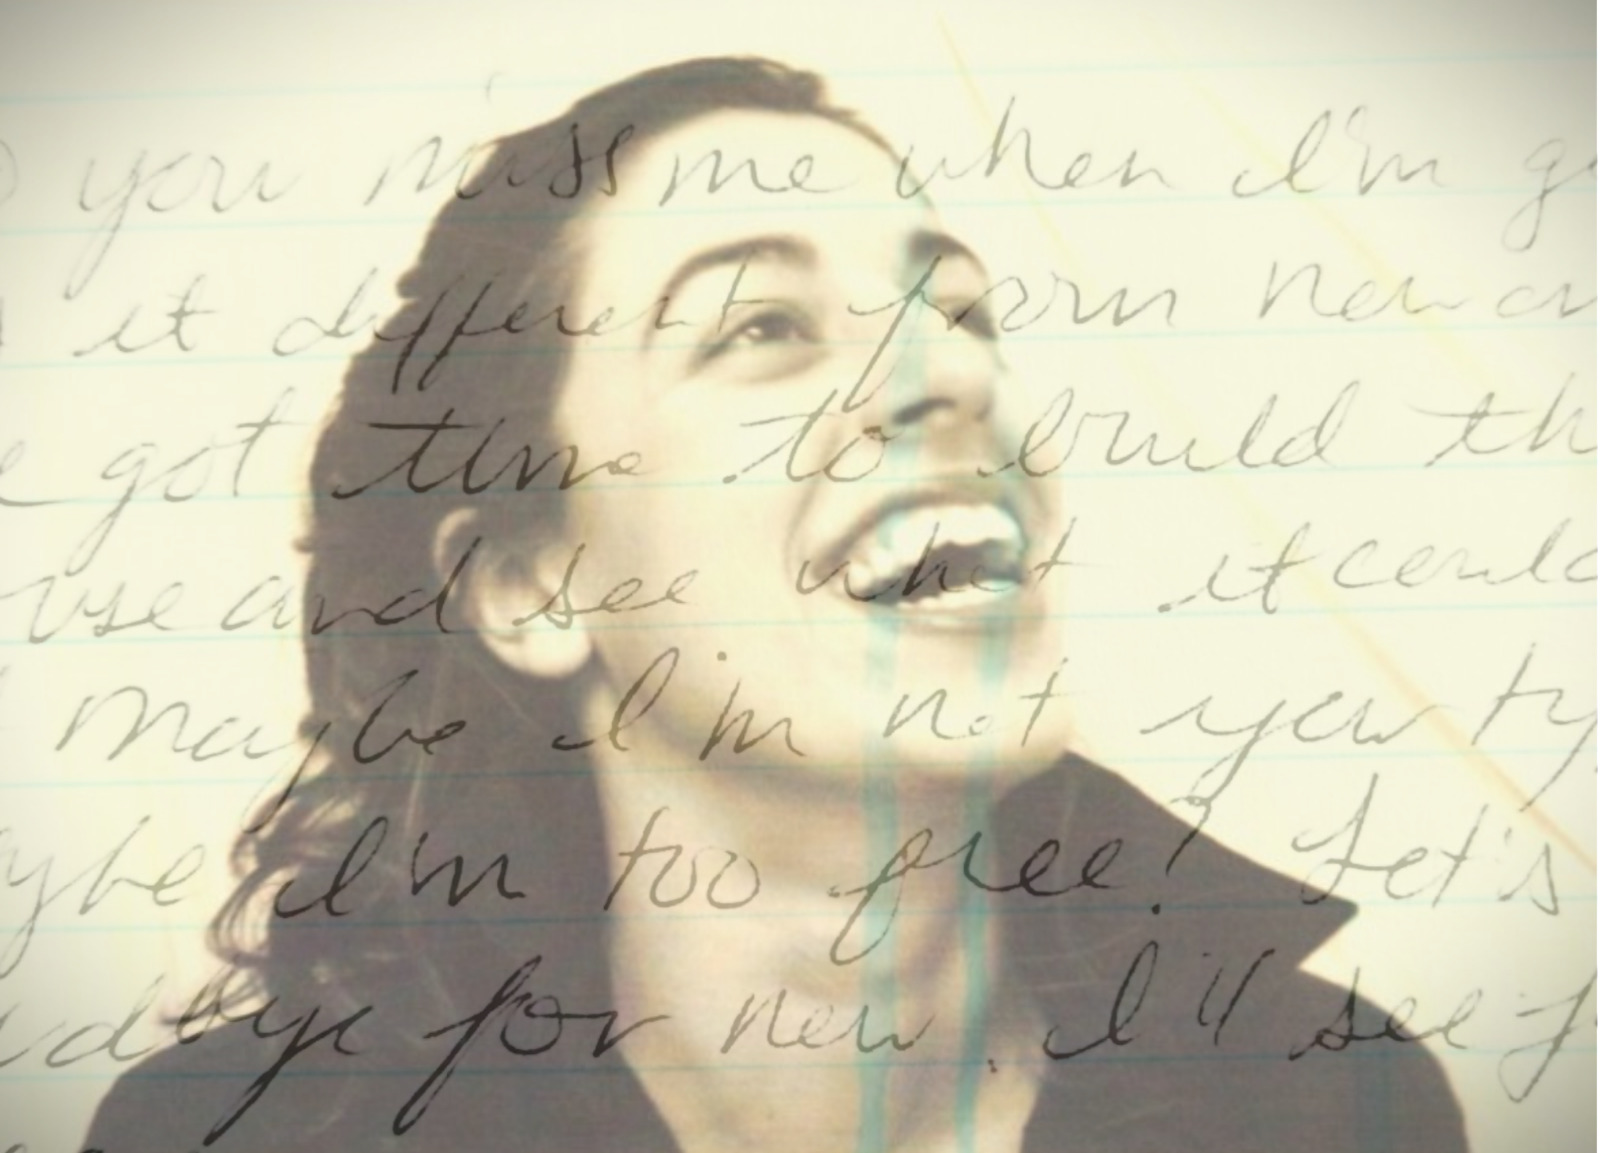 you miss me when I'm
it different from now
got time to build th
use and see what it could
maybe I'm not your ty
ybe I'm too free? Let's
dbye for now. I'll see